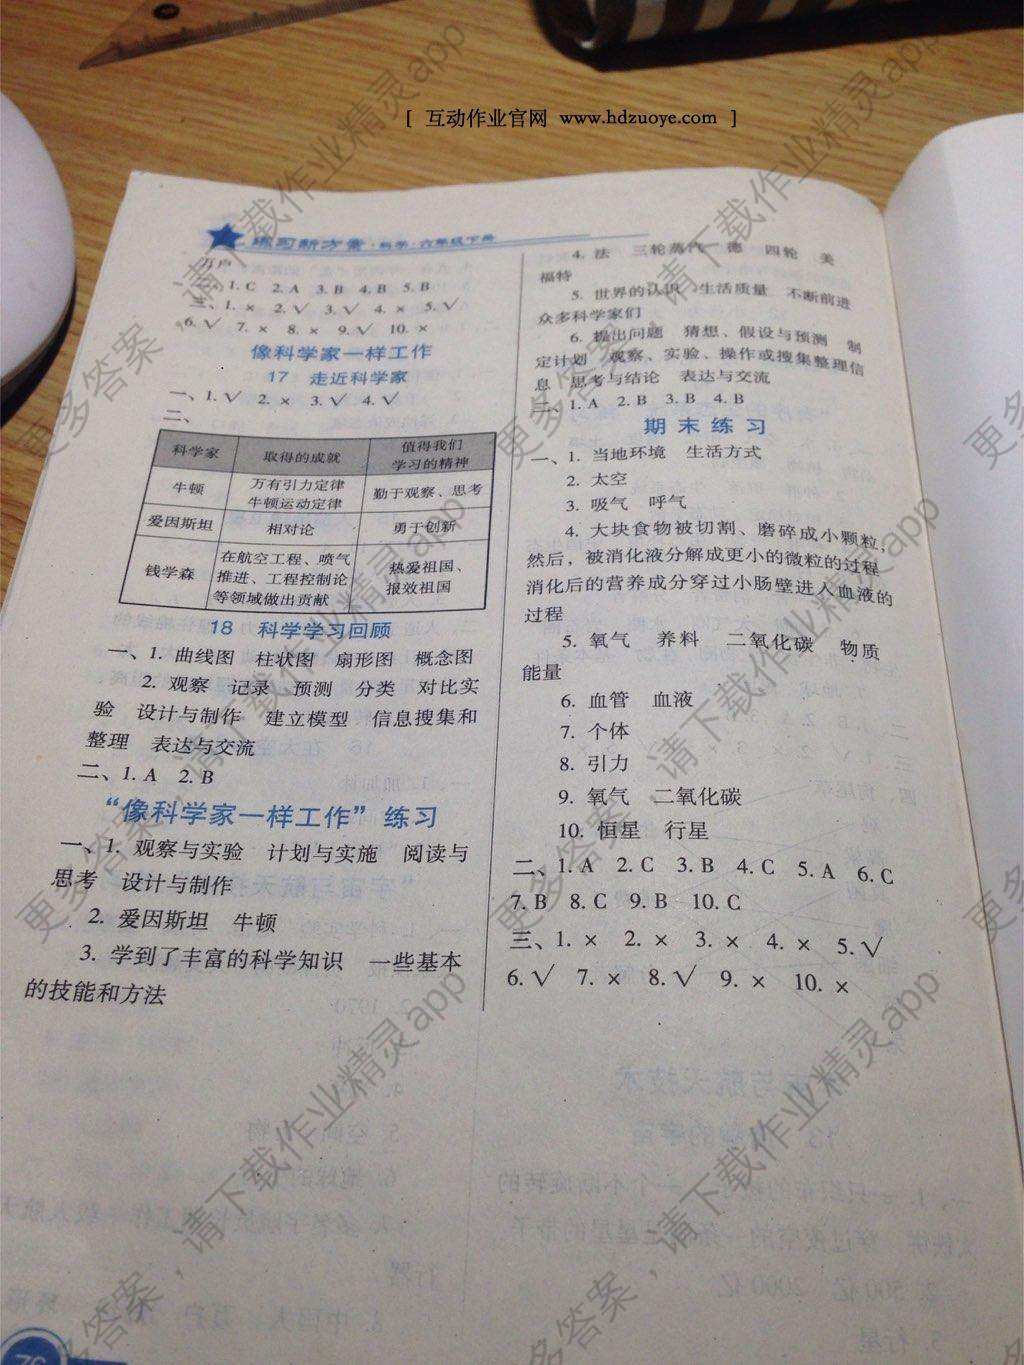 [ 互动作业官网 www.hdzuoye.com ]
练习新方案·科学·六年级下册
万户
二、1. C 2. A 3. B 4. B 5. B
三、1. × 2. √ 3. √ 4. × 5. √
6. √ 7. × 8. × 9. √ 10. ×
像科学家一样工作
17 走近科学家
一、1. √ 2. × 3. √ 4. √
二、
科学家 取得的成就 值得我们学习的精神
牛顿 万有引力定律 牛顿运动定律 勤于观察、思考
爱因斯坦 相对论 勇于创新
钱学森 在航空工程、喷气推进、工程控制论等领域做出贡献 热爱祖国、报效祖国
18 科学学习回顾
一、1. 曲线图 柱状图 扇形图 概念图
2. 观察 记录 预测 分类 对比实
验 设计与制作 建立模型 信息搜集和
整理 表达与交流
二、1. A 2. B
“像科学家一样工作”练习
一、1. 观察与实验 计划与实施 阅读与
思考 设计与制作
2. 爱因斯坦 牛顿
3. 学到了丰富的科学知识 一些基本
的技能和方法
4. 法 三轮蒸汽 德 四轮 美
福特
5. 世界的认识 生活质量 不断前进
众多科学家们
6. 提出问题 猜想、假设与预测 制
定计划 观察、实验、操作或搜集整理信
息 思考与结论 表达与交流
二、1. A 2. B 3. B 4. B
期末练习
一、1. 当地环境 生活方式
2. 太空
3. 吸气 呼气
4. 大块食物被切割、磨碎成小颗粒，
然后，被消化液分解成更小的微粒的过程
消化后的营养成分穿过小肠壁进入血液的
过程
5. 氧气 养料 二氧化碳 物质
能量
6. 血管 血液
7. 个体
8. 引力
9. 氧气 二氧化碳
10. 恒星 行星
二、1. A 2. C 3. B 4. C 5. A 6. C
7. B 8. C 9. B 10. C
三、1. × 2. × 3. × 4. × 5. √
6. √ 7. × 8. √ 9. × 10. ×
76
更多答案，请下载作业精灵app